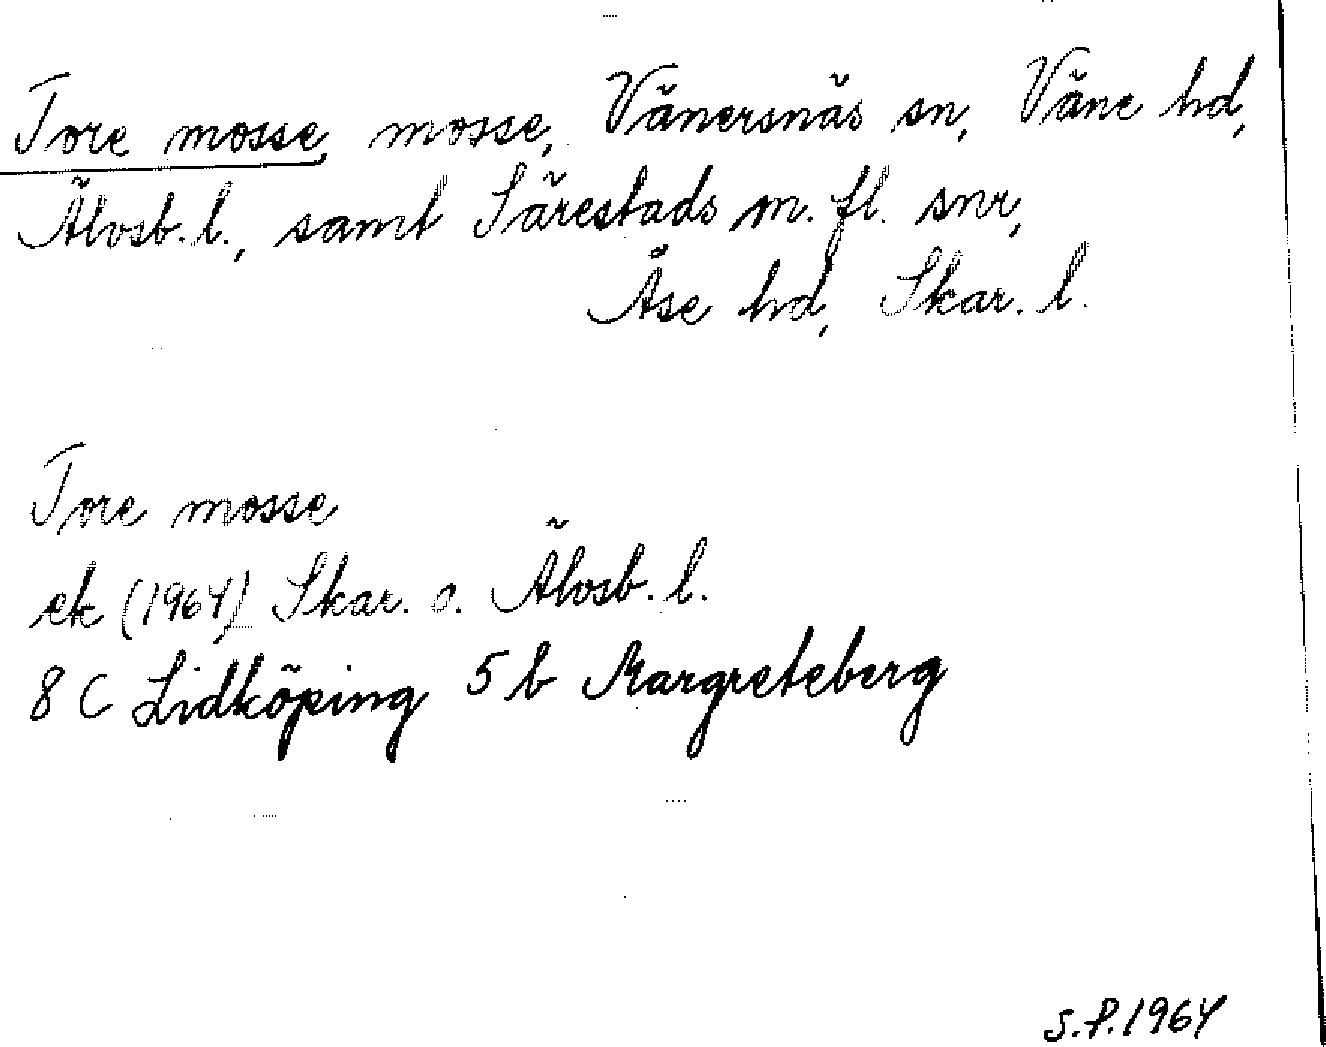 Tore mosse mosse, Vänersnäs sn, Väne hd,
Älvsb. l., samt Särestads m. fl. snr,
Åse hd, Skar. l.
Tore mosse
ek (1964) Skar. o. Älvsb. l.
8 C Lidköping 5 b Margreteberg
S.P. 1964